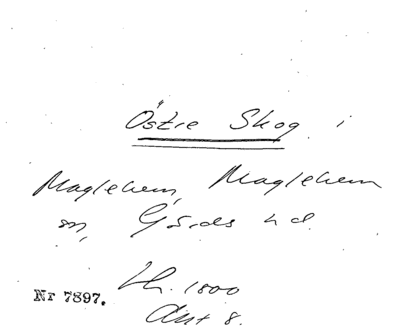 Östre Skog i
Maglehem, Maglehem
sn, Gärds hd.
Lh. 1800
Akt 8.
Nr 7897.